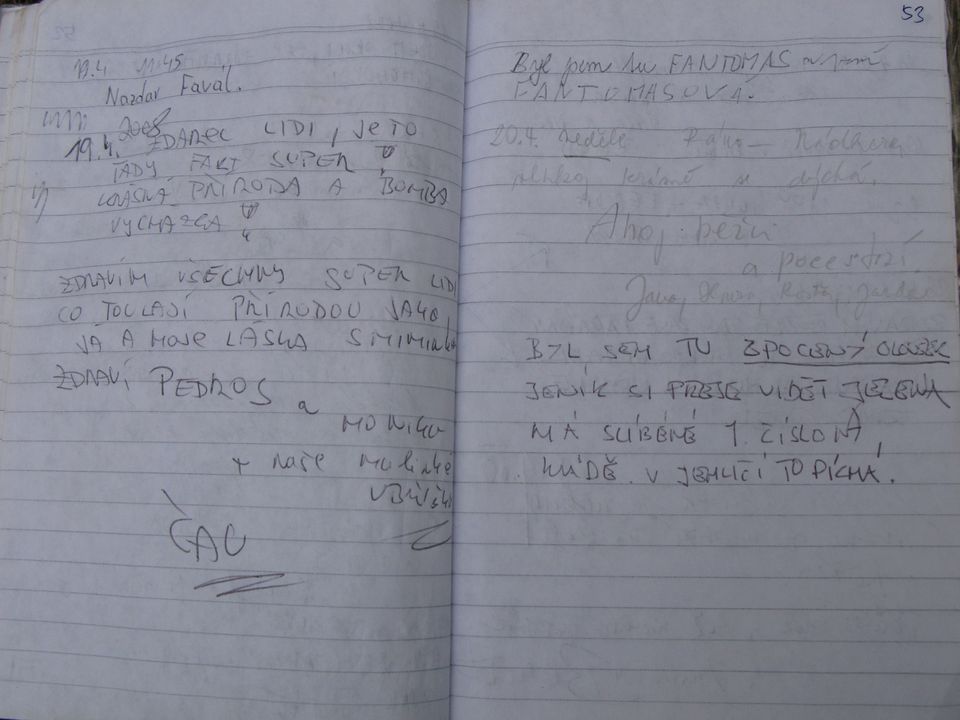 19.4 11:45
Nazdar Faval.
19.4. 2008 ZDAREC LIDI, JE TO
TADY FAKT SUPER
KRÁSNÁ PŘÍRODA A BOMBA
VYCHÁZCA
ZDRAVÍM VŠECHNY SUPER LIDI
CO TOULAJÍ PŘÍRODOU JAKO
JÁ A MOJE LÁSKA S MIMINKEM
ZDRAVÍ PEDROS
a
MONIKA
+ naše malinké
v bříšku
ČAU
53
Byl jsem tu FANTOMAS
FANTOMASOVÁ.
20.4. neděle Ráno
se dýchá.
Ahoj pěší
a pocestní
Jana,
BYL SEM TU ZPOCENÝ OLOUSEK
JENÍK SI PŘEJE VIDĚT JELENA
MÁ SLÍBENÉ 1. ČÍSLO NA
V JEHLIČÍ TO PÍCHÁ.